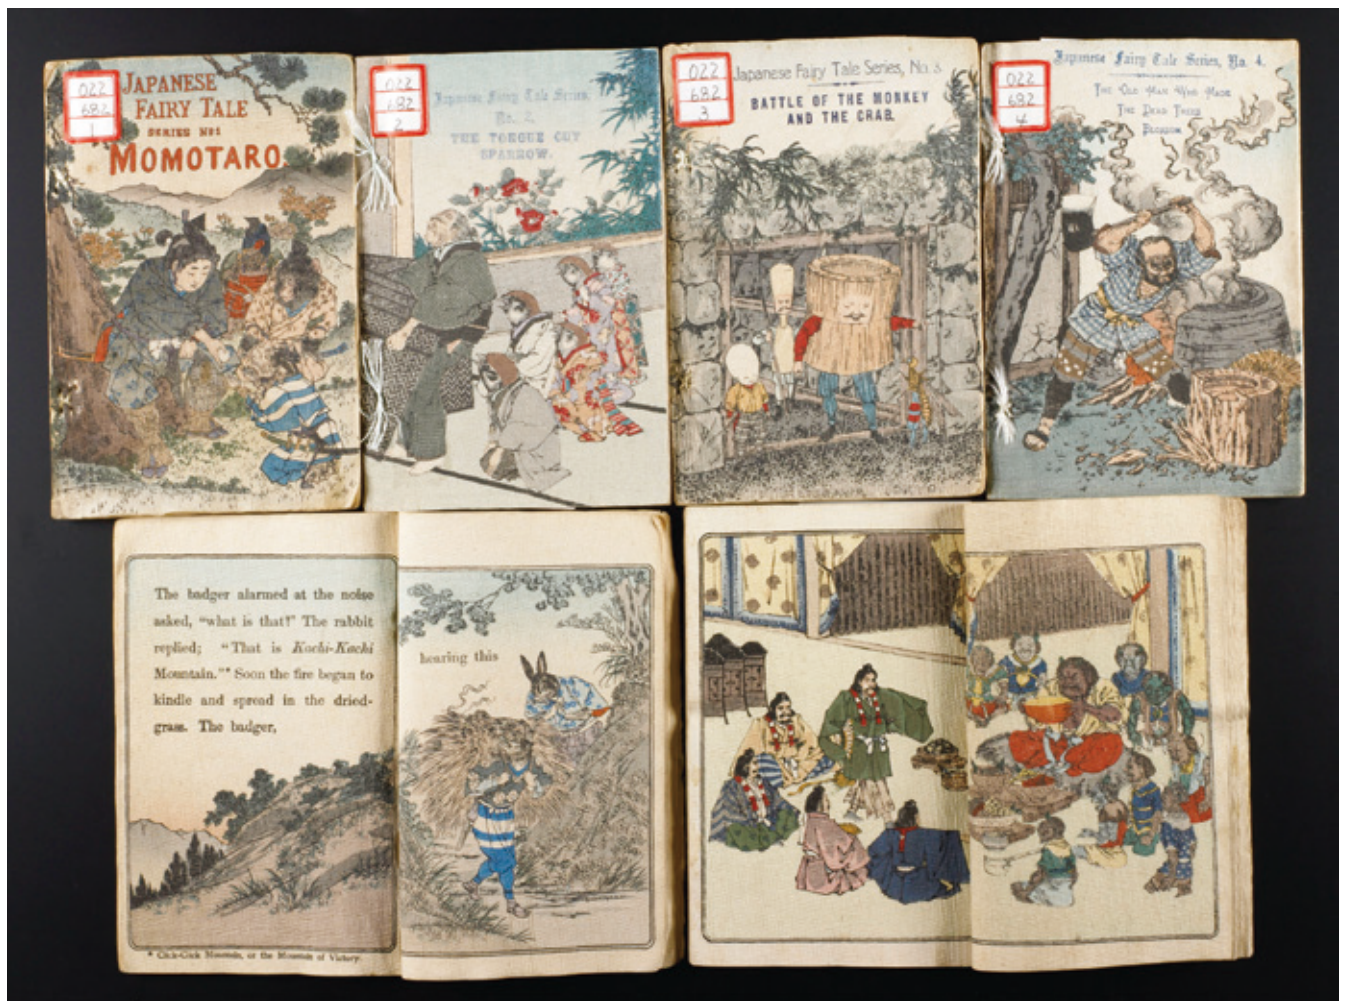 022
682
1
JAPANESE
FAIRY TALE
SERIES No 1
MOMOTARO.
022
682
2
Japanese Fairy Tale Series,
No. 2.
THE TONGUE CUT
SPARROW.
022
682
3
Japanese Fairy Tale Series, No. 3.
BATTLE OF THE MONKEY
AND THE CRAB.
022
682
4
Japanese Fairy Tale Series, No. 4.
The Old Man Who Made
The Dead Trees
Blossom
The badger alarmed at the noise
asked, "what is that?" The rabbit
replied; "That is Kachi-Kachi
Mountain."* Soon the fire began to
kindle and spread in the dried-
grass. The badger,
* Click-Click Mountain, or the Mountain of Victory.
hearing this